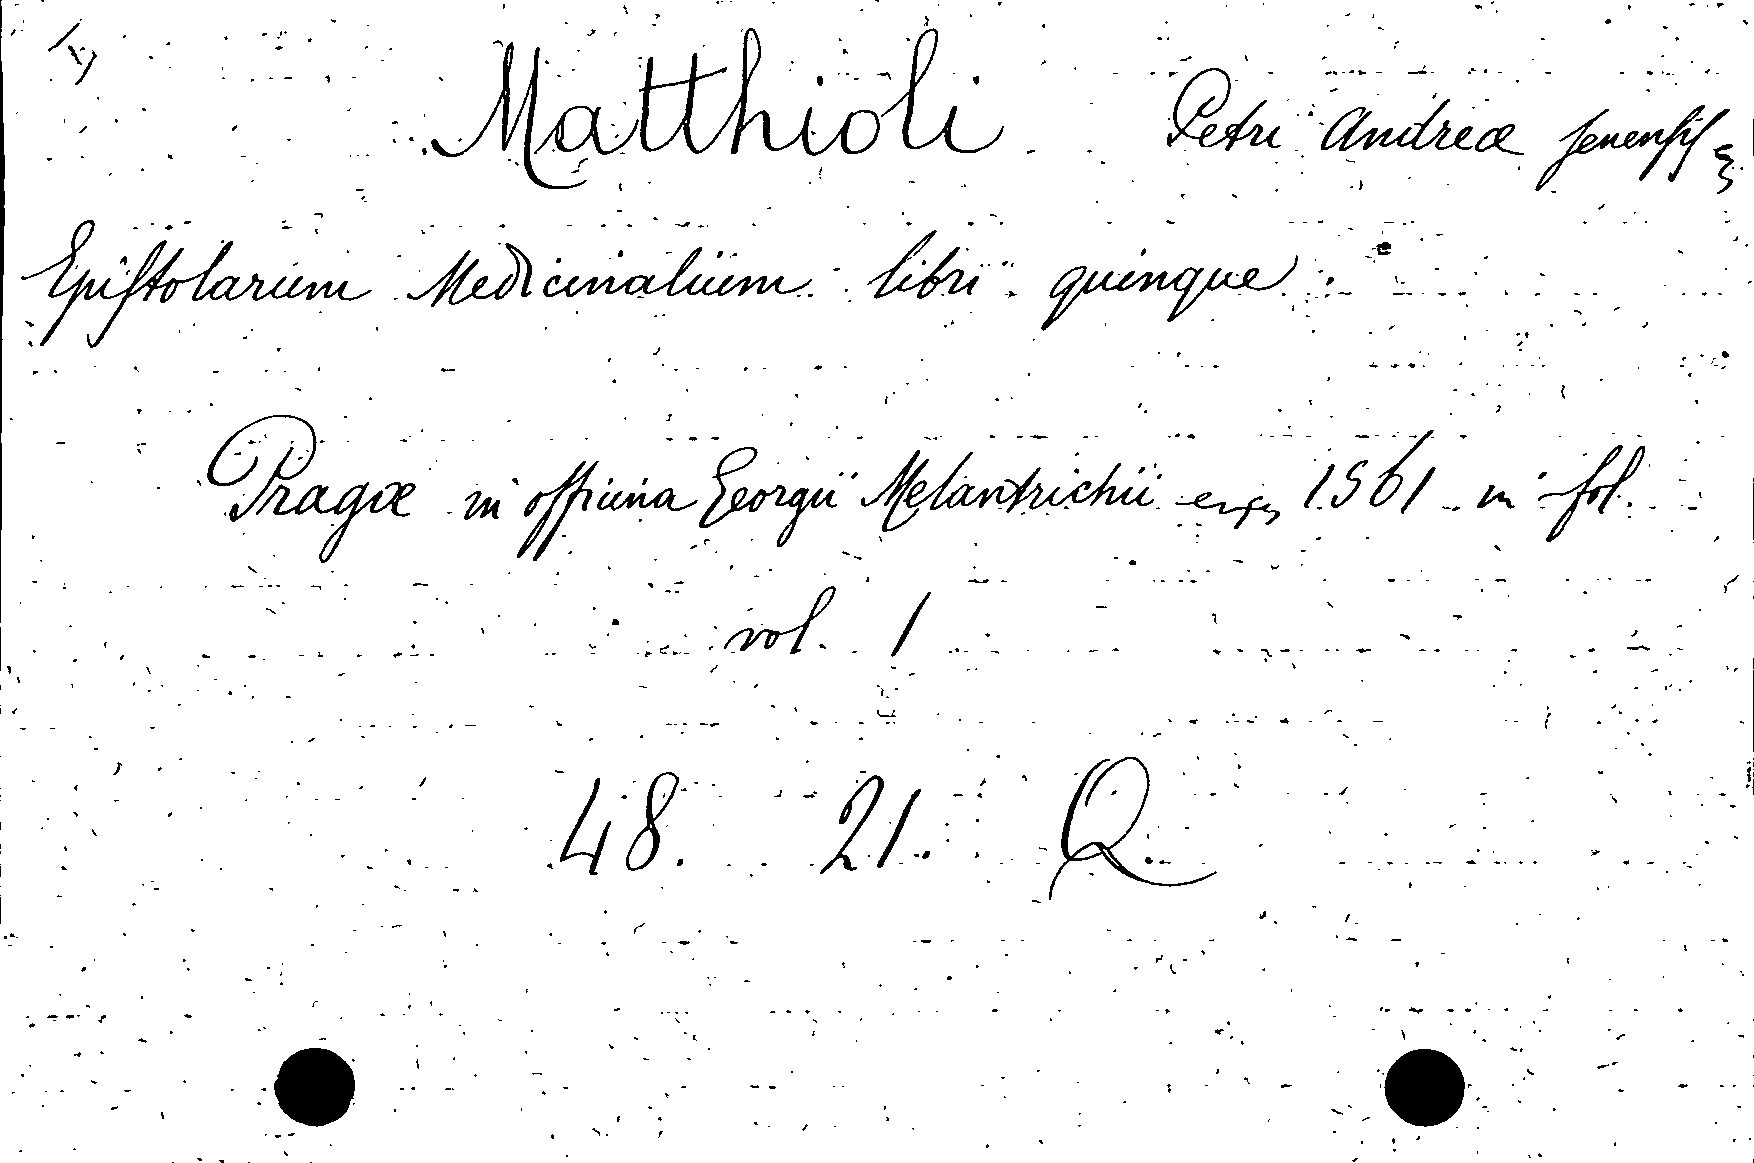 Matthioli Petri Andreæ senensis
Epistolarum Medicinalium libri quinque
Pragæ in officina Georgii Melantrichii 1561 in fol.
vol. 1
48. 21. Q.